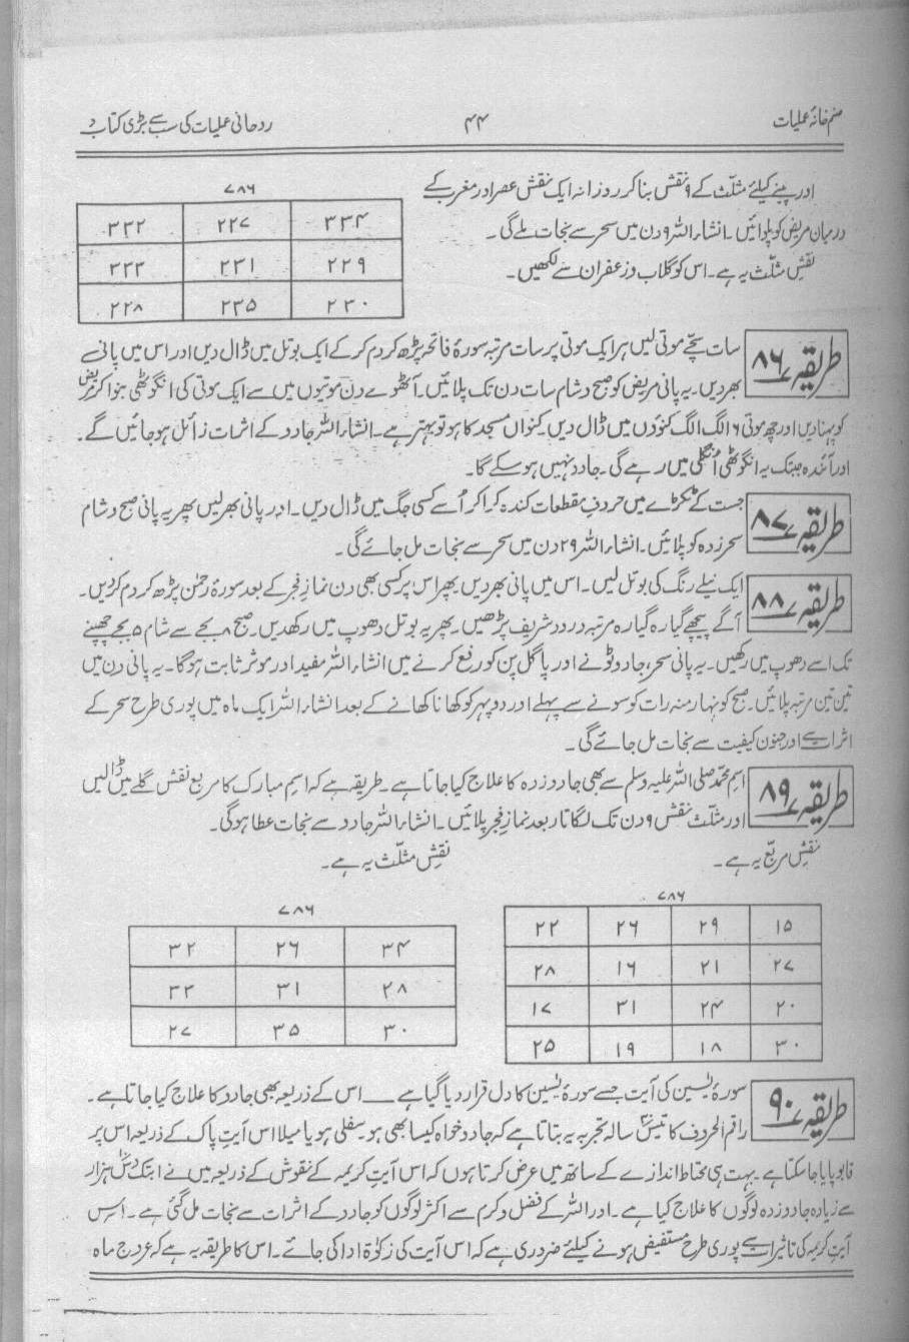 صنم خانۂ عملیات
۴۴
روحانی عملیات کی سب سے بڑی کتاب
اور پینے کیلئے مثلّث کے ۹ نقش بنا کر روزانہ ایک نقش عصر اور مغرب کے
درمیان مریض کو پلوائیں۔ انشاء اللہ ۹ دن میں سحر سے نجات ملے گی۔
نقشِ مثلّث یہ ہے۔ اس کو گلاب و زعفران سے لکھیں۔
۷۸۶
۳۳۴ ۲۲۷ ۳۳۲
۲۲۹ ۲۳۱ ۲۳۳
۲۳۰ ۲۳۵ ۲۲۸
طریقہ ۸۶
سات سچّے موتی لیں ہر ایک موتی پر سات مرتبہ سورۂ فاتحہ پڑھ کر دم کر کے ایک بوتل میں ڈال دیں اور اس میں پانی
بھر دیں۔ یہ پانی مریض کو صبح و شام سات دن تک پلائیں۔ آٹھویں دن موتیوں میں سے ایک موتی کی انگوٹھی بنوا کر مریض
کو پہنا دیں اور چھ موتی ۶ الگ الگ کنوؤں میں ڈال دیں۔ کنواں مسجد کا ہو تو بہتر ہے۔ انشاء اللہ جادو کے اثرات زائل ہو جائیں گے۔
اور آئندہ جب تک یہ انگوٹھی اُنگلی میں رہے گی۔ جادو نہیں ہو سکے گا۔
طریقہ ۸۷
جست کے ٹکڑے میں حروفِ مقطعات کندہ کرا کر اُسے کسی جگ میں ڈال دیں۔ اور پانی بھر لیں پھر یہ پانی صبح و شام
سحر زدہ کو پلائیں۔ انشاء اللہ ۲۹ دن میں سحر سے نجات مل جائے گی۔
طریقہ ۸۸
ایک نیلے رنگ کی بوتل لیں۔ اس میں پانی بھر دیں پھر اس پر کسی بھی دن نمازِ فجر کے بعد سورۂ رحمٰن پڑھ کر دم کر دیں۔
آگے پیچھے گیارہ گیارہ مرتبہ درود شریف پڑھیں۔ پھر یہ بوتل دھوپ میں رکھدیں۔ صبح ۸ بجے سے شام ۵ بجے چھپنے
تک اسے دھوپ میں رکھیں۔ یہ پانی سحر، جادو ٹونے اور پاگل پن کو رفع کرنے میں انشاء اللہ مفید اور موثر ثابت ہوگا۔ یہ پانی دن میں
تین تین مرتبہ پلائیں۔ صبح کو نہار منہ رات کو سونے سے پہلے اور دوپہر کو کھانا کھانے کے بعد انشاء اللہ ایک ماہ میں پوری طرح سحر کے
اثرات سے اور جنون کیفیت سے نجات مل جائے گی۔
طریقہ ۸۹
اسمِ محمّد صلی اللہ علیہ وسلم سے بھی جادو زدہ کا علاج کیا جاتا ہے۔ طریقہ ہے کہ اسم مبارک کا مربع نقش گلے میں ڈالیں
اور مثلّث نقش ۹ دن تک لگاتار بعد نمازِ فجر پلائیں۔ انشاء اللہ جادو سے نجات عطا ہوگی۔
نقشِ مربّع یہ ہے۔
نقشِ مثلّث یہ ہے۔
۷۸۶
۱۵ ۲۹ ۲۶ ۲۲
۲۷ ۲۱ ۱۶ ۲۸
۲۰ ۲۴ ۳۱ ۱۷
۳۰ ۱۸ ۱۹ ۲۵
۷۸۶
۳۴ ۲۶ ۳۲
۲۸ ۳۱ ۳۳
۳۰ ۳۵ ۲۷
طریقہ ۹۰
سورۂ یٰسین کی آیت جسے سورۂ یٰسین کا دل قرار دیا گیا ہے ـــ اس کے ذریعہ بھی جادو کا علاج کیا جاتا ہے۔
راقم الحروف کا تیس سالہ تجربہ یہ بتاتا ہے کہ جادو خواہ کیسا بھی ہو سفلی ہو یا میلا اس آیتِ پاک کے ذریعہ اس پر
قابو پایا جاسکتا ہے۔ بہت ہی محتاط اندازے کے ساتھ میں عرض کرتا ہوں کہ اس آیتِ کریمہ کے نقوش کے ذریعہ میں نے ابتک دس ہزار
سے زیادہ جادو زدہ لوگوں کا علاج کیا ہے۔ اور اللہ کے فضل و کرم سے اکثر لوگوں کو جادو کے اثرات سے نجات مل گئی ہے۔ اس
آیتِ کریمہ کی تاثیرات سے پوری طرح مستفیض ہونے کیلئے ضروری ہے کہ اس آیت کی زکوٰۃ ادا کی جائے۔ اس کا طریقہ یہ ہے کہ عروج ماہ